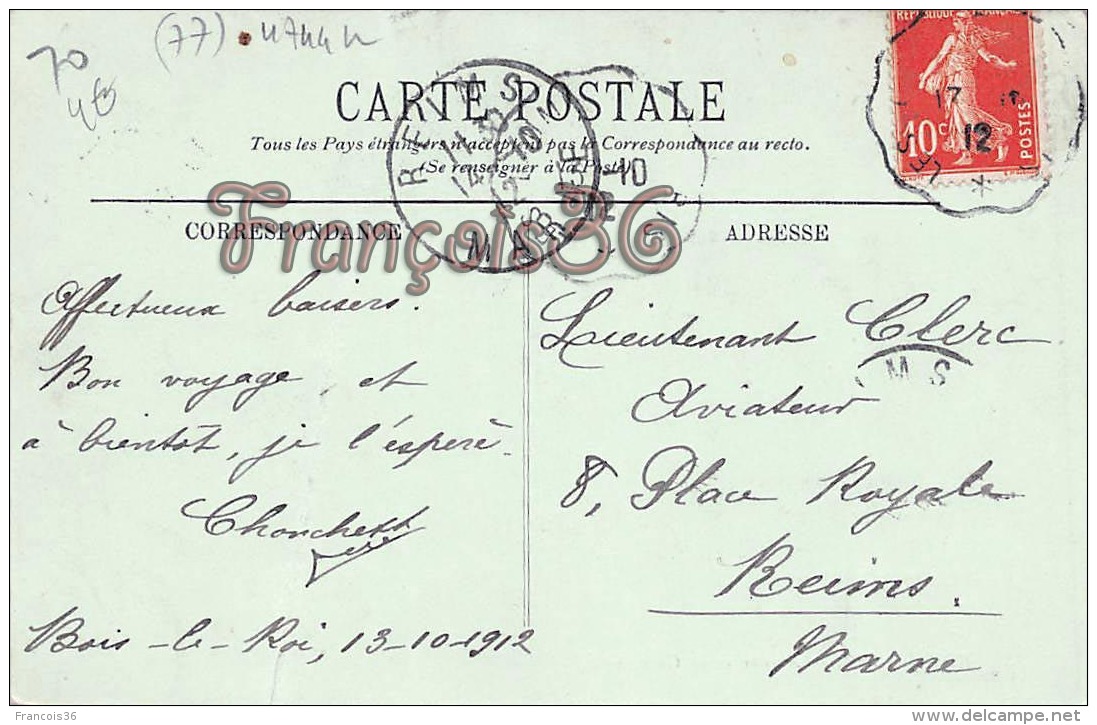 (77)
70
CARTE POSTALE
Tous les Pays étrangers n'acceptent pas la Correspondance au recto.
(Se renseigner à la Poste)
REPUBLIQUE FRANÇAISE
10c
POSTES
17
12
REIMS
MARNE
10
CORRESPONDANCE
François36
ADRESSE
Affectueux baisers.
Bon voyage, et
à bientôt, je l'espère.
Bois-le-Roi, 13-10-1912
Lieutenant Clerc
MS
Aviateur
8, Place Royale
Reims.
Marne
Francois36
www.delcampe.net